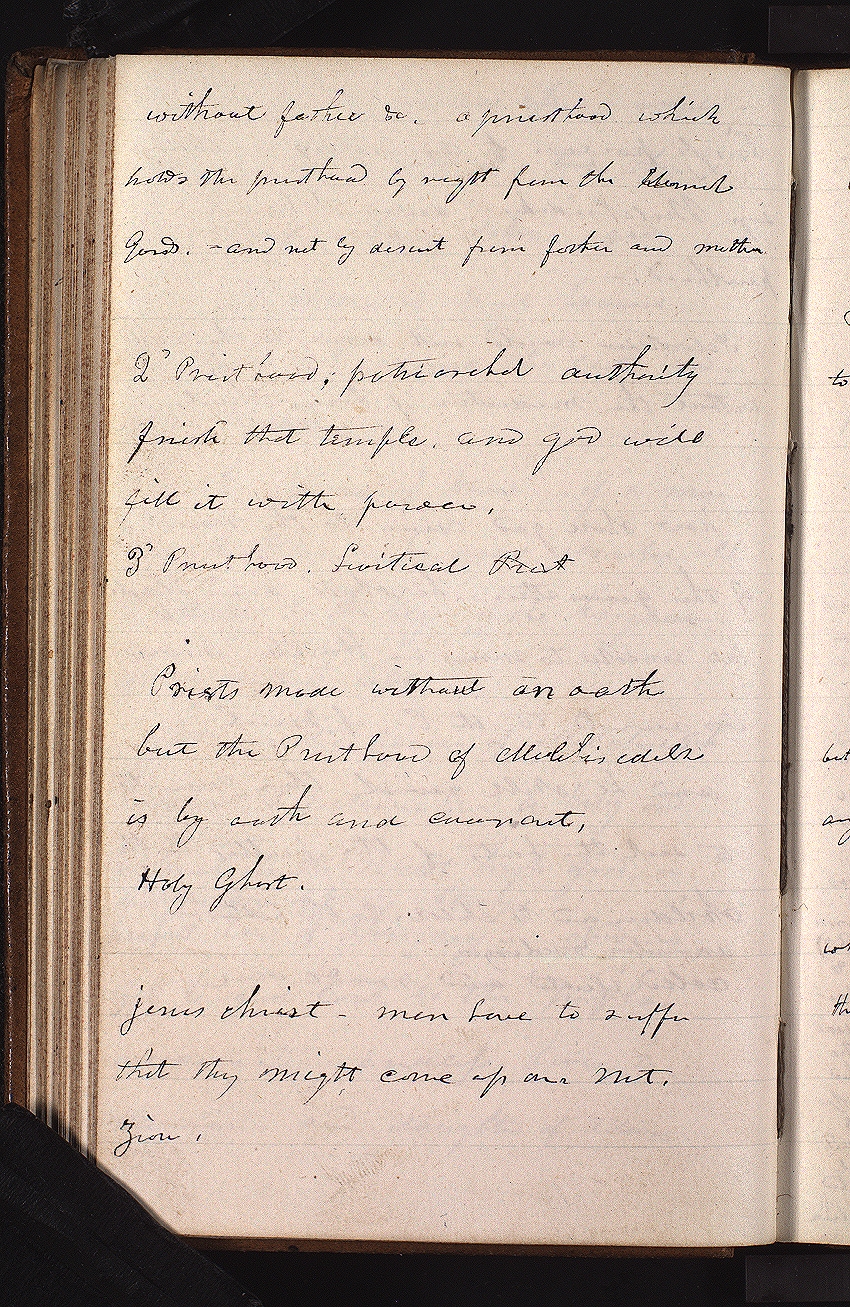 without father &c. a priesthood which
holds the priesthood by right from the Eternal
Gods. - and not by descent from father and mother
2d Priesthood; patriarchal authority
finish that temple. and god will
fill it with power.
3d Priesthood. Levitical Priest
Priests made without an oath
but the Priesthood of Melchisedek
is by oath and covenant.
Holy Ghost.
jesus christ - men have to suffer
that they might come up on Mt.
Zion.
to
but